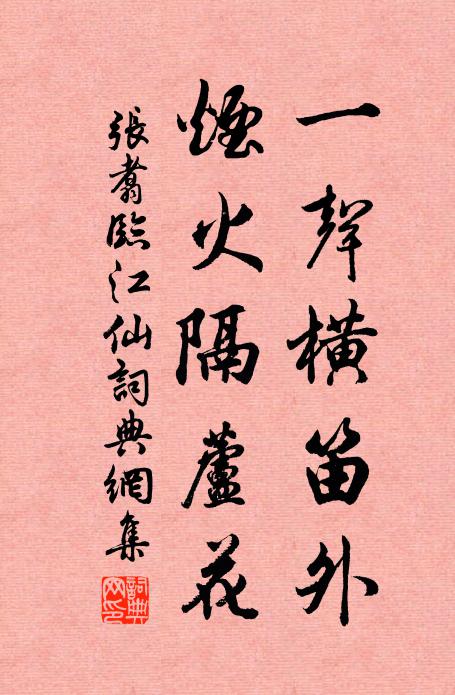 一聲橫笛外
煙火隔蘆花
張翥臨江仙詞典網集
詞典网印